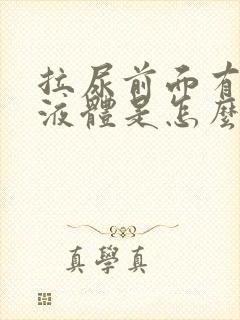 拉尿前面有
液體是怎麼
真學真